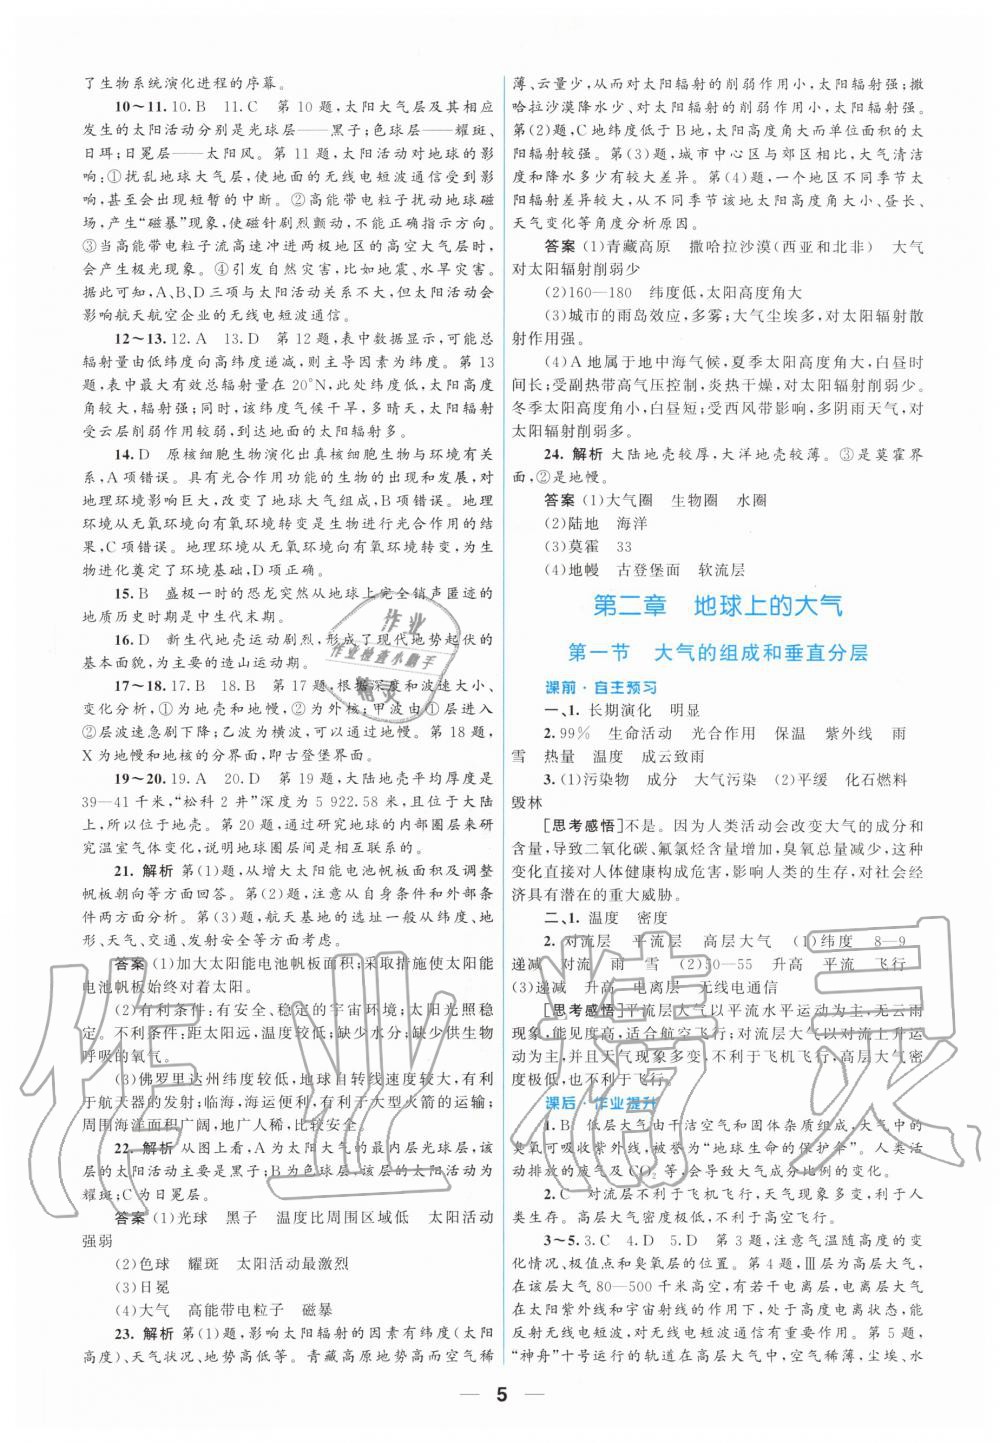 了生物系统演化进程的序幕。
10～11. 10. B　11. C　第 10 题,太阳大气层及其相应
发生的太阳活动分别是光球层——黑子;色球层——耀斑、
日珥;日冕层——太阳风。第 11 题,太阳活动对地球的影
响:①扰乱地球大气层,使地面的无线电短波通信受到影
响,甚至会出现短暂的中断。②高能带电粒子扰动地球磁
场,产生“磁暴”现象,使磁针剧烈颤动,不能正确指示方向。
③当高能带电粒子流高速冲进两极地区的高空大气层时,
会产生极光现象。④引发自然灾害,比如地震、水旱灾害。
据此可知,A、B、D 三项与太阳活动关系不大,但太阳活动会
影响航天航空企业的无线电短波通信。
12～13. 12. A　13. D　第 12 题,表中数据显示,可能总
辐射量由低纬度向高纬度递减,则主导因素为纬度。第 13
题,表中最大有效总辐射量在 20°N,此处纬度低,太阳高度
角较大,辐射强;同时,该纬度气候干旱,多晴天,太阳辐射
受云层削弱作用较弱,到达地面的太阳辐射多。
14. D　原核细胞生物演化出真核细胞生物与环境有关
系,A 项错误。具有光合作用功能的生物的出现和发展,对
地理环境影响巨大,改变了地球大气组成,B 项错误。地理
环境从无氧环境向有氧环境转变是生物进行光合作用的结
果,C 项错误。地理环境从无氧环境向有氧环境转变,为生
物进化奠定了环境基础,D 项正确。
15. B　盛极一时的恐龙突然从地球上完全销声匿迹的
地质历史时期是中生代末期。
16. D　新生代地壳运动剧烈,形成了现代地势起伏的
基本面貌,主要的造山运动期。
17～18. 17. B　18. B　第 17 题,根据深度和波速大小、
变化分析,①为地壳和地幔,②为外核;甲波由①层进入
②层波速急剧下降;乙波为横波,可以此判断。第 18 题,
X 为地幔和地核的分界面,即古登堡界面。
19～20. 19. A　20. D　第 19 题,大陆地壳平均厚度是
39—41 千米,“松科 2 井”深度为 5 922.58 米,且位于大陆
上,所以位于地壳。第 20 题,通过研究地球的内部圈层来研
究温室气体变化,说明地球圈层是相互联系的。
21. 解析　第(1)题,从增大太阳能电池帆板面积及调整
帆板朝向等方面回答。第(2)题,注意从自身条件和外部条
件两方面分析。第(3)题,航天基地的选址一般从纬度、地
形、天气、交通、发射安全等方面考虑。
答案　(1)加大太阳能电池帆板面积;采取措施使太阳能
电池帆板始终对着太阳。
(2)有利条件:有安全、稳定的宇宙环境;太阳光照稳
定。不利条件:距太阳远,温度较低;缺少水分;缺少供生物
呼吸的氧气。
(3)佛罗里达州纬度较低,地球自转线速度较大,有利
于航天器的发射;临海,海运便利,有利于大型火箭的运输;
周围海洋面积广阔,地广人稀,比较安全。
22. 解析　从图上看,A 为太阳大气的最内层光球层,该
层的太阳活动主要是黑子;B 为色球层,该层的太阳活动为
耀斑;C 为日冕层。
答案　(1)光球　黑子　温度比周围区域低　太阳活动
强弱
(2)色球　耀斑　太阳活动最激烈
(3)日冕
(4)大气　高能带电粒子　磁暴
23. 解析　第(1)题,影响太阳辐射的因素有纬度(太阳
高度)、天气状况、地势高低等。青藏高原地势高而空气稀
薄、云量少,从而对太阳辐射的削弱作用小,太阳辐射强;撒
哈拉沙漠降水少、对太阳辐射的削弱作用小,太阳辐射强。
第(2)题,C 地纬度低于 B 地,太阳高度角大而单位面积的太
阳辐射较强。第(3)题,城市中心区与郊区相比,大气清洁
度和降水多少有较大差异。第(4)题,一个地区不同季节太
阳辐射差异大小,从不同季节该地太阳高度角大小、昼长、
天气变化等角度分析原因。
答案　(1)青藏高原　撒哈拉沙漠(西亚和北非)　大气
对太阳辐射削弱少
(2)160—180　纬度低,太阳高度角大
(3)城市的雨岛效应,多雾;大气尘埃多,对太阳辐射散
射作用强。
(4)A 地属于地中海气候,夏季太阳高度角大,白昼时
间长;受副热带高气压控制,炎热干燥,对太阳辐射削弱少。
冬季太阳高度角小,白昼短;受西风带影响,多阴雨天气,对
太阳辐射削弱多。
24. 解析　大陆地壳较厚,大洋地壳较薄。③是莫霍界
面,②是地幔。
答案　(1)大气圈　生物圈　水圈
(2)陆地　海洋
(3)莫霍　33
(4)地幔　古登堡面　软流层
第二章　地球上的大气
第一节　大气的组成和垂直分层
课前·自主预习
一、1. 长期演化　明显
2. 99%　生命活动　光合作用　保温　紫外线　雨
雪　热量　温度　成云致雨
3. (1)污染物　成分　大气污染　(2)平缓　化石燃料
毁林
[思考感悟]不是。因为人类活动会改变大气的成分和
含量,导致二氧化碳、氟氯烃含量增加,臭氧总量减少,这种
变化直接对人体健康构成危害,影响人类的生存,对社会经
济具有潜在的重大威胁。
二、1. 温度　密度
2. 对流层　平流层　高层大气　(1)纬度　8—9
递减　对流　雨　雪　(2)50—55　升高　平流　飞行
(3)递减　升高　电离层　无线电通信
[思考感悟]平流层大气以平流水平运动为主,无云雨
现象,能见度高,适合航空飞行;对流层大气以对流上升运
动为主,并且天气现象多变,不利于飞机飞行;高层大气密
度极低,也不利于飞行。
课后·作业提升
1. B　低层大气由干洁空气和固体杂质组成,大气中的
臭氧可以吸收紫外线,被誉为“地球生命的保护伞”。人类活
动排放的废气及 CO₂ 等,会导致大气成分比例的变化。
2. C　对流层不利于飞机飞行,天气现象多变,有利于人
类生存。高层大气密度极低,不利于航空飞行。
3～5. 3. C　4. D　5. D　第 3 题,注意气温随高度的变
化情况、极值点和臭氧层的位置。第 4 题,Ⅲ层为高层大气,
在该层大气 80—500 千米高空,有若干电离层,电离层大气
在太阳紫外线和宇宙射线的作用下,处于高度电离状态,能
反射无线电短波,对无线电短波通信有重要作用。第 5 题,
“神舟”十号运行的轨道在高层大气中,空气稀薄,尘埃、水
5
作业
作业检查小帮手
精灵
作业精灵